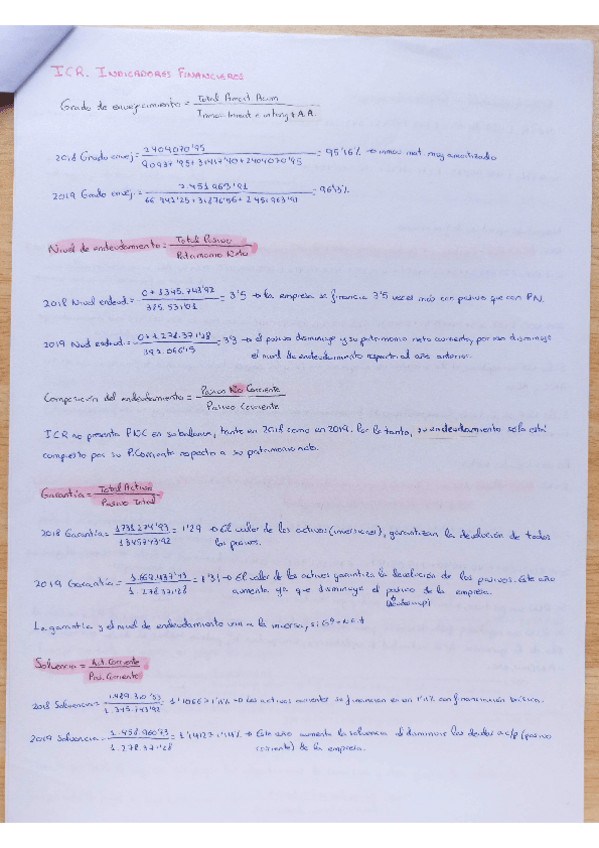 ICR. INDICADORES FINANCIEROS
Grado de envejecimiento = Total Amort Acum
Inmov. + A.A.
2018 Grado envej = 2404070'95 = 95'16% → inmov mat. muy amortizado
90937'95 + 31417'90 + 2404070'95
2019 Grado envej. = 2.451.963'91 = 96'13%
66.942'25 + 31876'56 + 2.451.963'91
Nivel de endeudamiento = Total Pasivo
Patrimonio Neto
2018 Nivel endeud. = 0 + 1345.743'92 = 3'5 → La empresa se financia 3'5 veces más con pasivo que con PN.
385.531'01
2019 Nivel endeud. = 0 + 1.278.371'28 = 3'3 → el pasivo disminuye y su patrimonio neto aumenta, por eso disminuye
el nivel de endeudamiento respecto al año anterior.
Composición del endeudamiento = Pasivo No Corriente
Pasivo Corriente
ICR no presenta PNC en su balance, tanto en 2018 como en 2019. Por lo tanto, su endeudamiento sólo está
compuesto por su P.Corriente respecto a su patrimonio neto.
Garantía = Total Activo
Pasivo Total
2018 Garantía = 1731.274'93 = 1'29 → El valor de los activos (inversiones), garantizan la devolución de todos
1345743'92 los pasivos.
2019 Garantía = 1.669.437'43 = 1'31 → El valor de los activos garantiza la devolución de los pasivos. Este año
1.278.371'28 aumenta ya que disminuye el pasivo de la empresa.
La garantía y el nivel de endeudamiento van a la inversa, si Gª↑ = NE↓
Solvencia = Act. Corriente
Pas. Corriente
2018 Solvencia = 1.489.310'53 = 1'1066 → Los activos corrientes se financian en un con financiación básica.
1.345.743'92
2019 Solvencia = 1.458.960'73 = 1'1412 → Este año aumenta la solvencia al disminuir las deudas a c/p (pasivo
1.278.371'28 corriente) de la empresa.